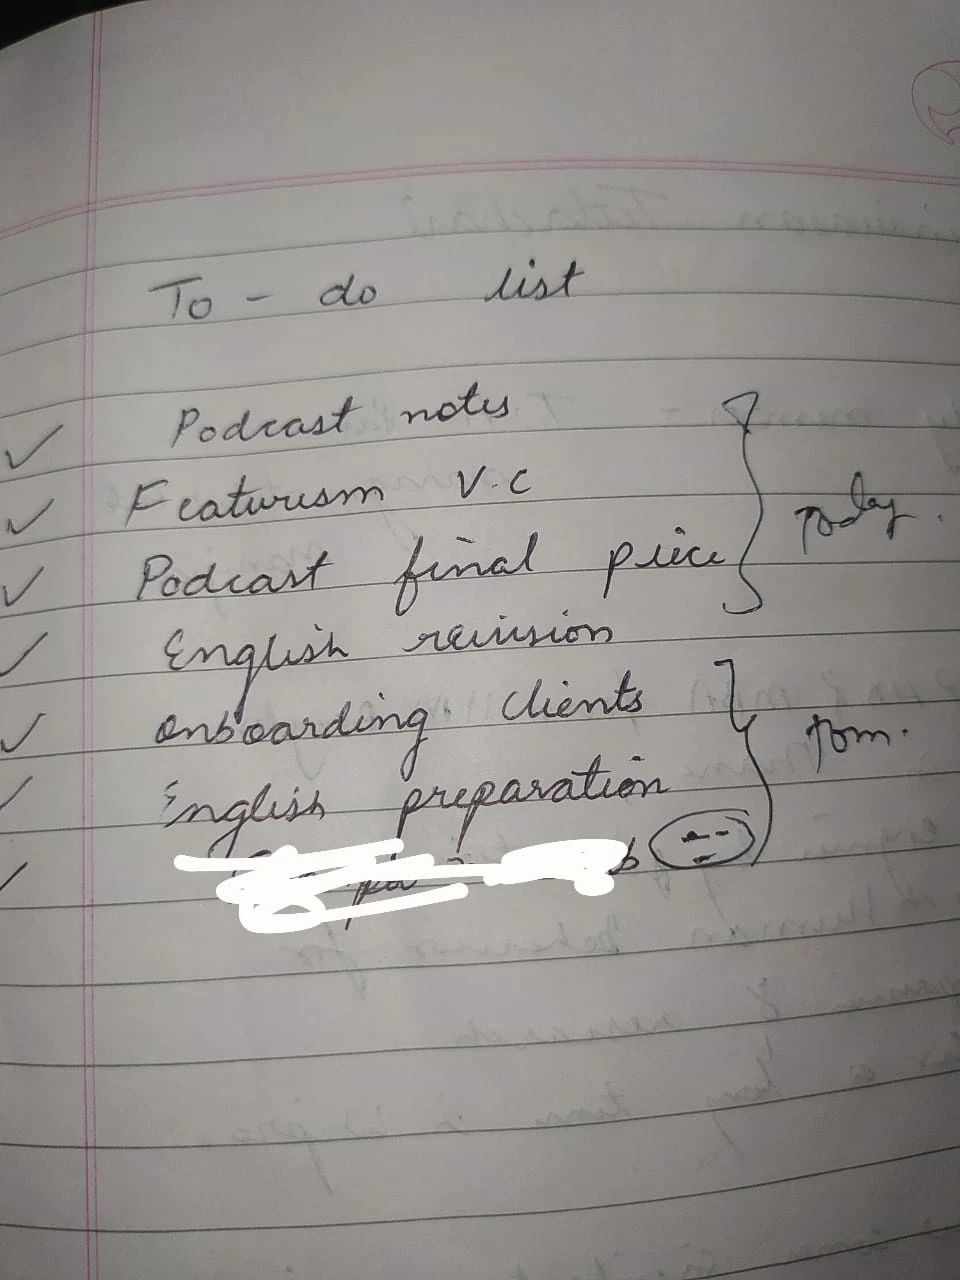 To - do list
Podcast notes
Featurism V.C
Podcast final piece
Today.
English revision
Onboarding clients
tom.
English preparation